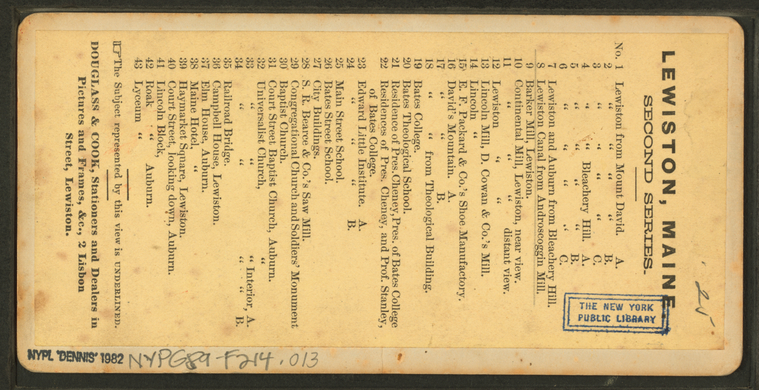 LEWISTON, MAINE
SECOND SERIES.
No. 1 Lewiston from Mount David. A.
2 " " " " B.
3 " " " " C.
4 " " Bleachery Hill. A.
5 " " " " B.
6 " " " " C.
7 Lewiston and Auburn from Bleachery Hill.
8 Lewiston Canal from Androscoggin Mill.
9 Barker Mill, Lewiston.
10 Continental Mill, Lewiston, near view.
11 " " " distant view.
12 Lewiston "
13 Lincoln Mill, D. Cowan & Co.'s Mill.
14 Lincoln "
15 E. F. Packard & Co.'s Shoe Manufactory.
16 David's Mountain. A.
17 " " B.
18 " " from Theological Building.
19 Bates College.
20 Bates Theological School.
21 Residence of Pres. Cheney, Pres. of Bates College
22 Residences of Pres. Cheney, and Prof. Stanley,
of Bates College.
23 Edward Little Institute. A.
24 " " " B.
25 Main Street School.
26 Bates Street School.
27 City Buildings.
28 S. R. Bearce & Co.'s Saw Mill.
29 Congregational Church and Soldiers' Monument
30 Baptist Church.
31 Court Street Baptist Church, Auburn.
32 Universalist Church, "
33 " " " Interior, A.
34 " " " " B.
35 Railroad Bridge.
36 Campbell House, Lewiston.
37 Elm House, Auburn.
38 Maine Hotel, "
39 Haymarket Square, Lewiston.
40 Court Street, looking down, Auburn.
41 Lincoln Block,
42 Roak " Auburn.
43 Lyceum "
☞The Subject represented by this view is UNDERLINED.
DOUGLASS & COOK, Stationers and Dealers in
Pictures and Frames, &c., 2 Lisbon
Street, Lewiston.
THE NEW YORK
PUBLIC LIBRARY
NYPL "DENNIS" 1982 NYPG89-F214.013